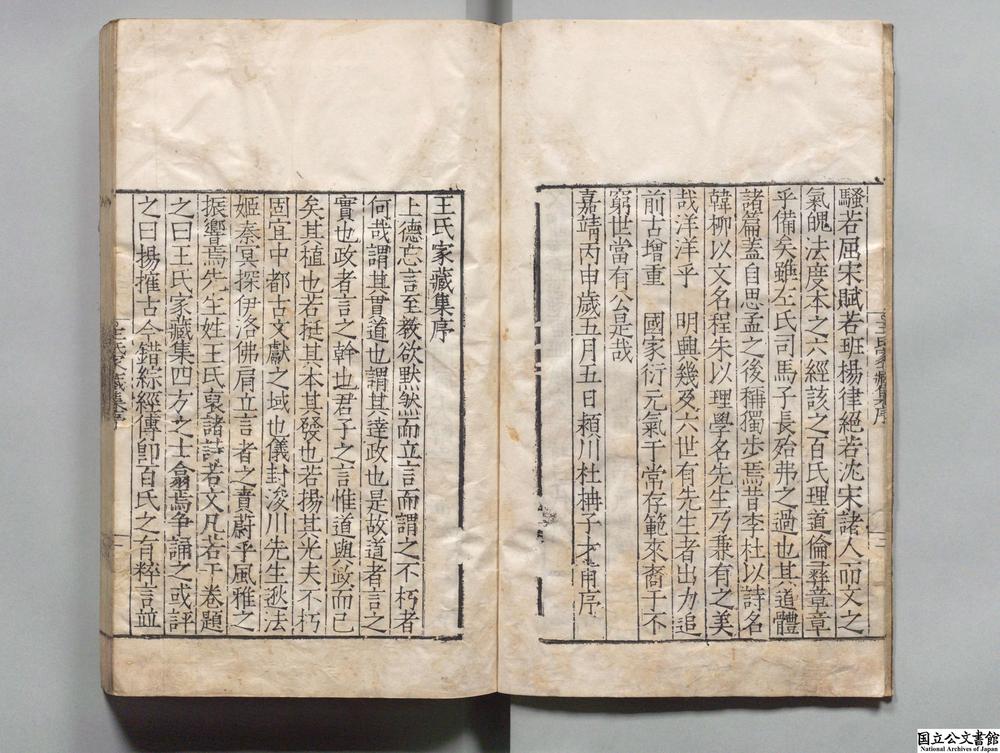 騷若屈宋賦若班揚律絕若沈宋諸人而文之
氣魄法度本之六經該之百氏理道倫彛章章
乎備矣雖左氏司馬子長殆弗之過也其道體
諸篇蓋自思孟之後稱獨步焉昔李杜以詩名
韓柳以文名程朱以理學名先生乃兼有之美
哉洋洋乎 明興幾及六世有先生者出力追
前古增重 國家衍元氣于常存範來裔于不
窮世當有公是哉
嘉靖丙申歲五月五日潁川杜柟子才甫序
王氏家藏集序
王氏家藏集序
上德忘言至教欲默然而立言而謂之不朽者
何哉謂其貫道也謂其達政也是故道者言之
實也政者言之幹也君子之言惟道與政而已
矣其植也若挺其本其發也若揚其光夫不朽
固宜中都古文獻之域也儀封浚川先生逖法
姬秦冥探伊洛佛肩立言者之責蔚乎風雅之
振響焉先生姓王氏裒諸詩若文凡若干卷題
之曰王氏家藏集四方之士翕焉爭誦之或評
之曰揚搉古今錯綜經傳卽百氏之有粹言並
王氏家藏集序
国立公文書館
National Archives of Japan